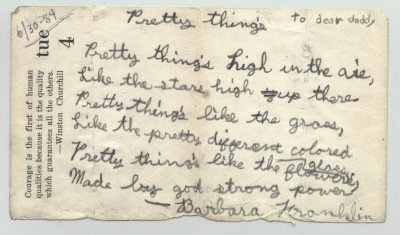 Pretty thing's
to dear daddy
Pretty thing's high in the air,
Like the stars high up there
Pretty thing's like the grass,
Like the pretty different colored glass,
Pretty thing's like the flowers,
Made by god strong power
— Barbara Franklin
tue
4
Courage is the first of human
qualities because it is the quality
which guarantees all the others.
—Winston Churchill